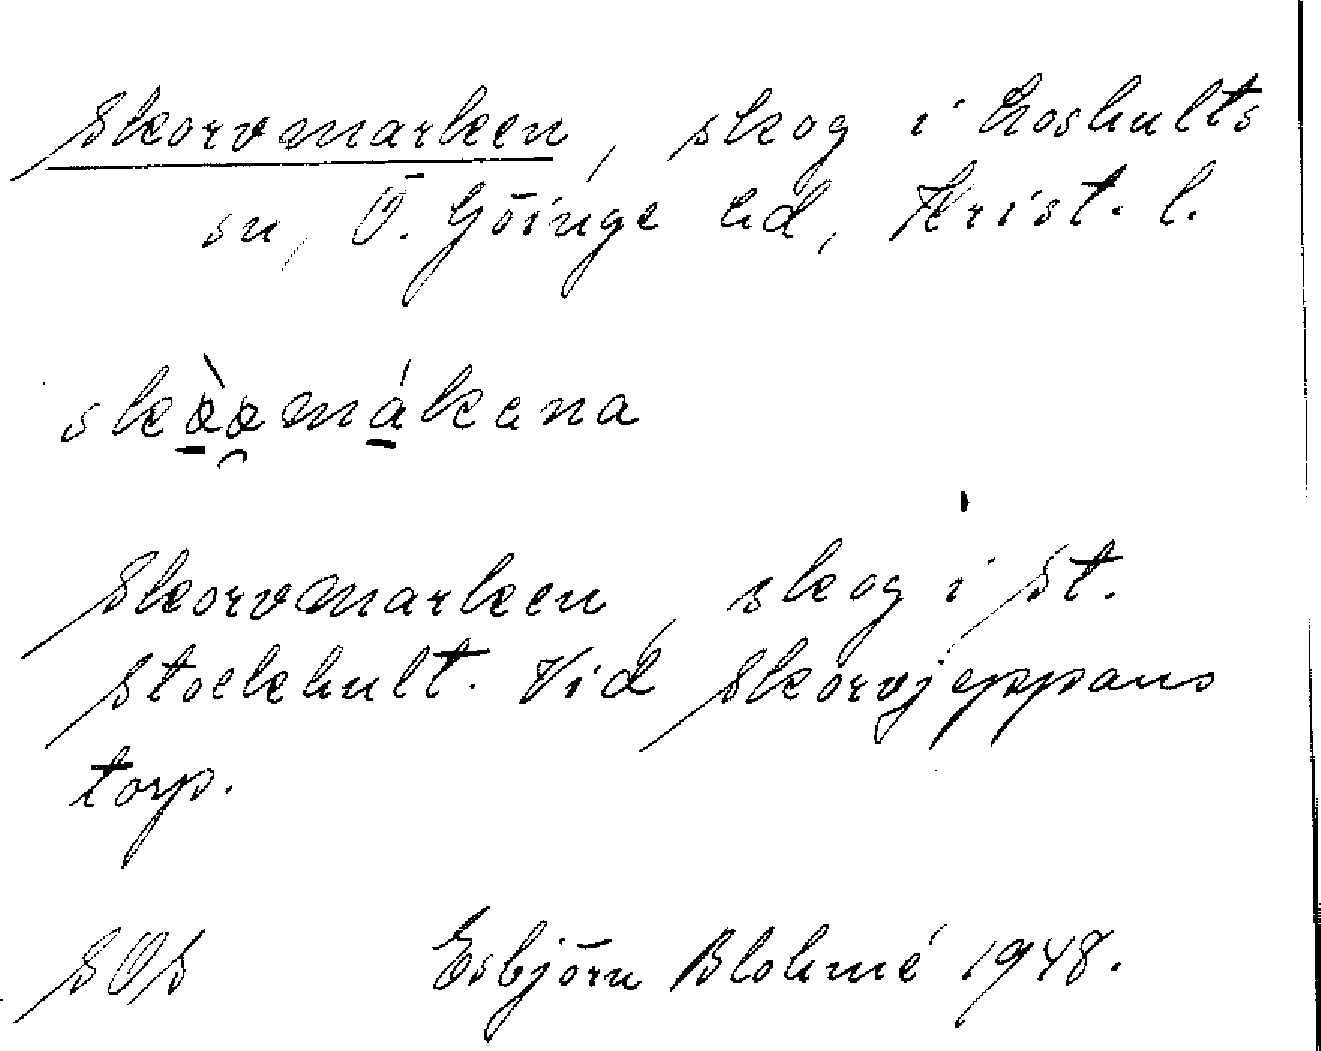 Skorvmarken, skog i Loshults
sn, Ö. Göinge hd, Krist. l.
Skorvmarken, skog i St.
Stockhult. Vid Skorvjeppans
torp.
SOS Esbjörn Blohmé 1948.